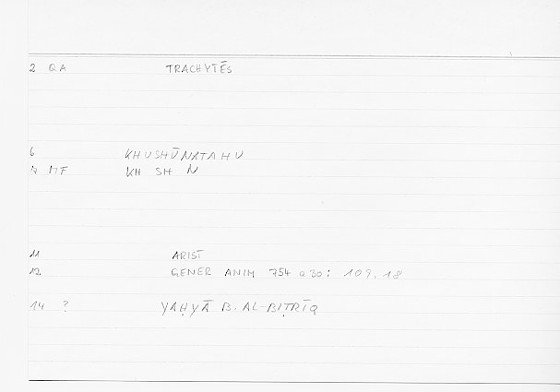 2 GA TRACHYTĒS
6 KHUSHŪNATAHU
9 MF KH SH N
11 ARIST
12 GENER ANIM 754 a 30: 109, 18
14 ? YAḤYĀ B. AL-BIṬRĪQ